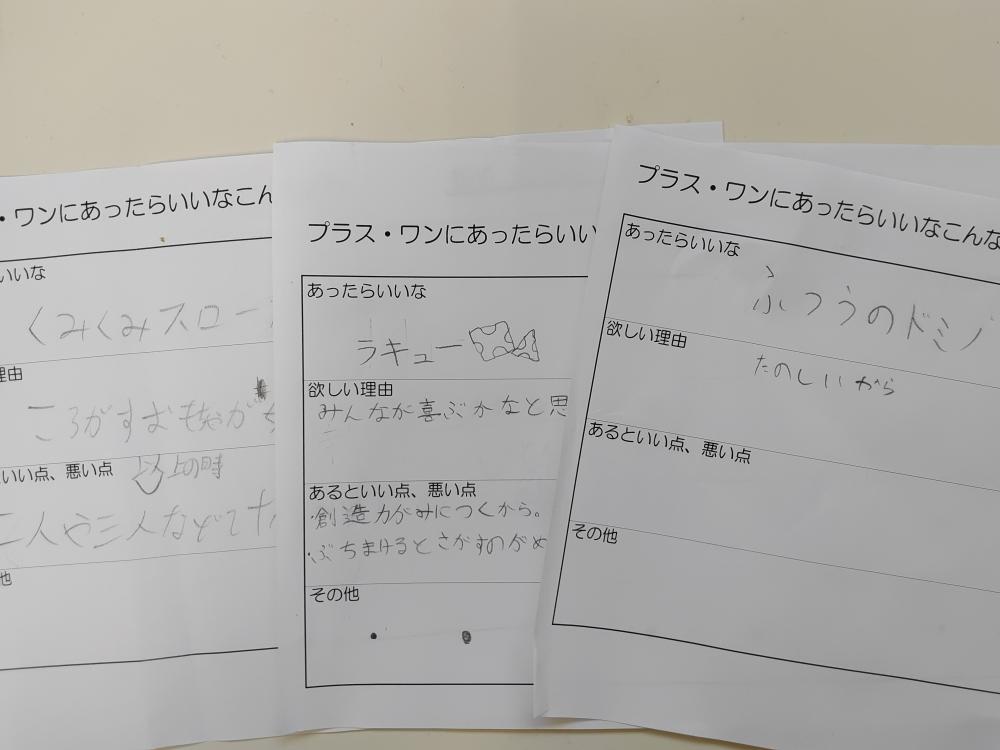 ・ワンにあったらいいなこん
いいな
くみくみスロー
理由
ころがすおもちゃが
いい点、悪い点
以上の時
二人や三人などで
他
プラス・ワンにあったらいい
あったらいいな
ラキュー
欲しい理由
みんなが喜ぶかなと思
あるといい点、悪い点
・創造力がみにつくから。
・ぶちまけるとさがすのがめ
その他
プラス・ワンにあったらいいなこんな
あったらいいな
ふつうのドミノ
欲しい理由
たのしいから
あるといい点、悪い点
その他